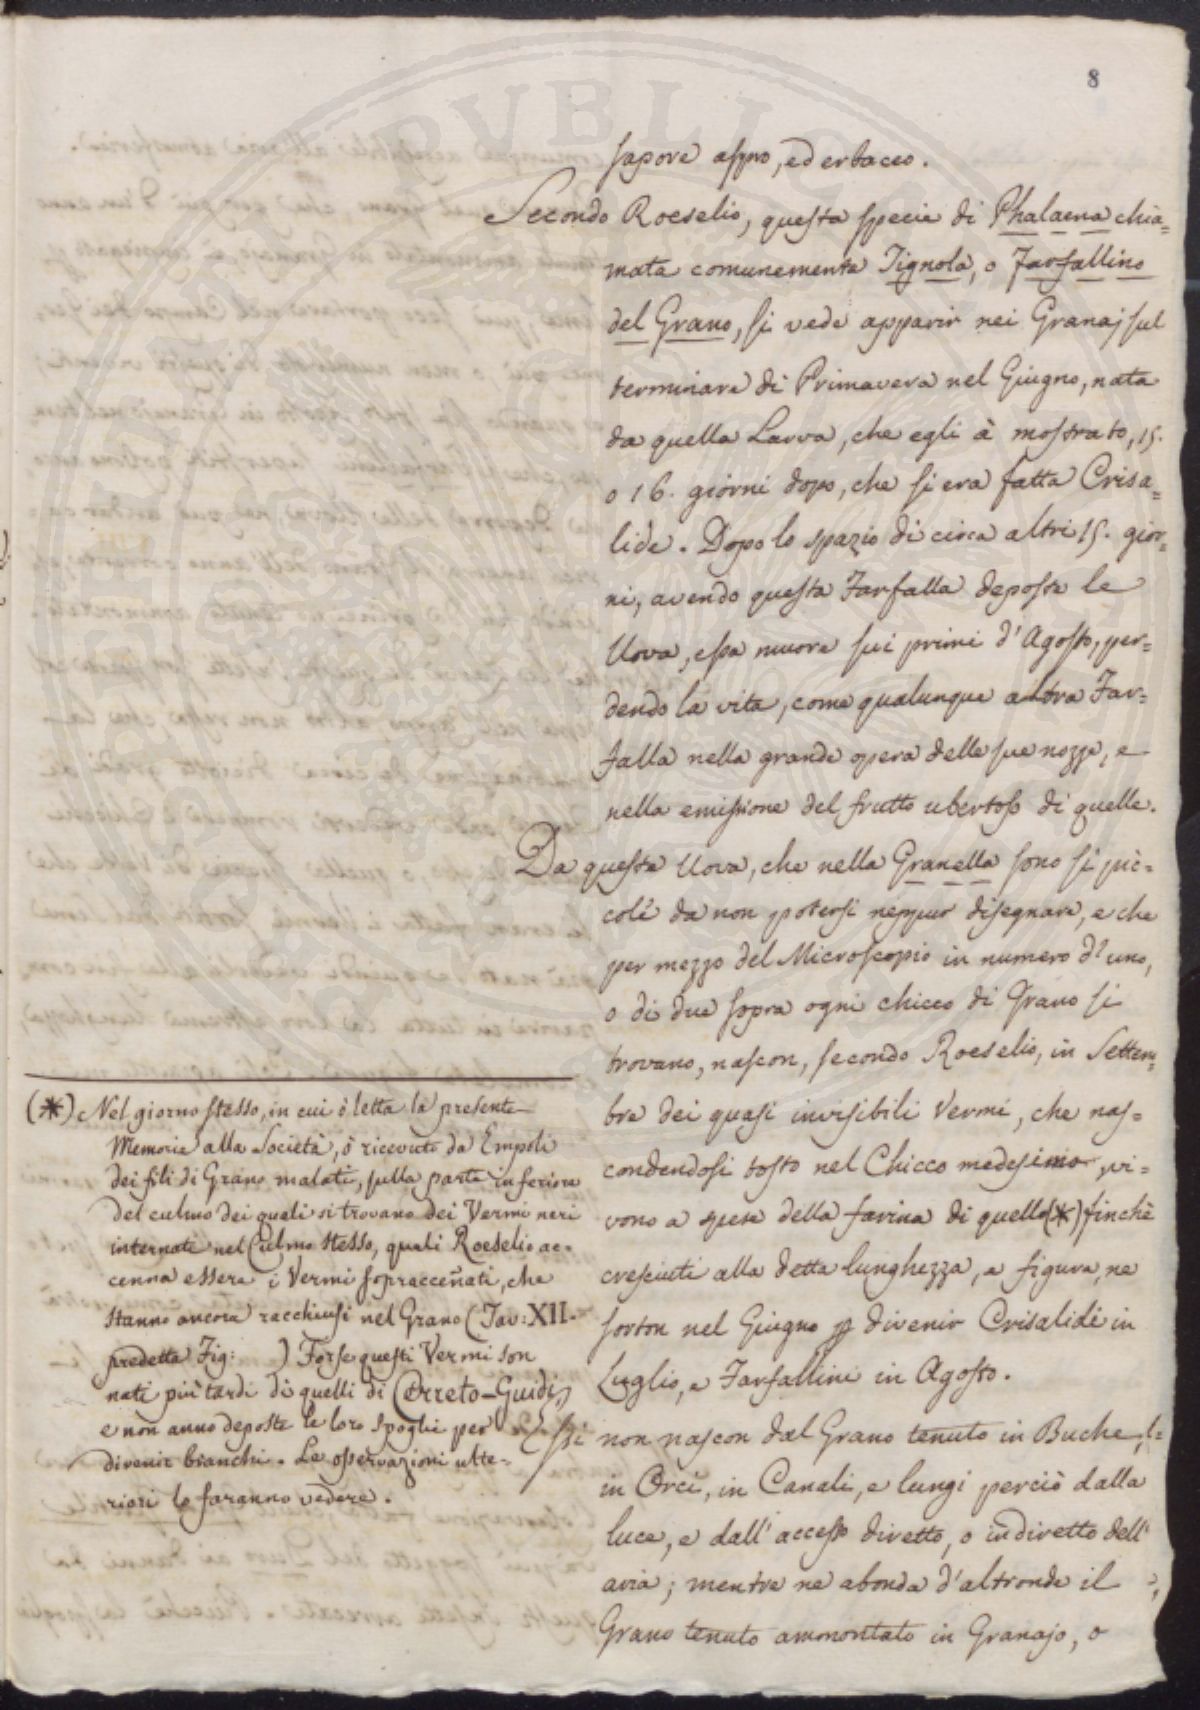 8
sapore aspro, ed erbaceo.
Secondo Roeselio, questa specie di Phalaena chia=
mata comunemente Tignola, o Farfallino
del Grano, si vede apparir nei Granaj sul
terminare di Primavera nel Giugno, nata
da quella Larva, che egli à mostrato, 15.
o 16. giorni dopo, che si era fatta Crisa=
lide. Dopo lo spazio di circa altri 15. gior=
ni, avendo questa Farfalla deposte le
Uova, essa muore sui primi d'Agosto, per=
dendo la vita, come qualunque altra Far=
falla nella grande opera delle sue nozze, e
nella emissione del frutto ubertoso di quelle.
Da queste Uova, che nella Granella sono sì pic=
cole da non potersi neppur disegnare, e che
per mezzo del Microscopio in numero d'uno,
o di due sopra ogni chicco di Grano si
trovano, nascon, secondo Roeselio, in Settem=
bre dei quasi invisibili Vermi, che nas=
condendosi tosto nel Chicco medesimo, vi=
vono a spese della farina di quello (*) finchè
cresciuti alla detta lunghezza, e figura, ne
sorton nel Giugno p divenir Crisalidi in
Luglio, e Farfallini in Agosto.
Essi non nascon dal Grano tenuto in Buche,
in Orci, in Canali, e lungi perciò dalla
luce, e dall'accesso diretto, o indiretto dell'
aria; mentre ne abonda d'altronde il
Grano tenuto ammontato in Granajo, o
(*) Nel giorno stesso, in cui ò letta la presente
Memoria alla Società, ò ricevuto da Empoli
dei fili di Grano malati, sulla parte inferiore
del culmo dei quali si trovano dei Vermi neri
internati nel Culmo stesso, quali Roeselio ac=
cenna essere i Vermi sopraccennati, che
stanno ancora racchiusi nel Grano (Tav: XII.
predetta Fig: ) Forse questi Vermi son
nati più tardi di quelli di Cerreto-Guidi,
e non anno deposte le loro spoglie per
divenir bianchi. Le osservazioni ulte=
riori lo faranno vedere.